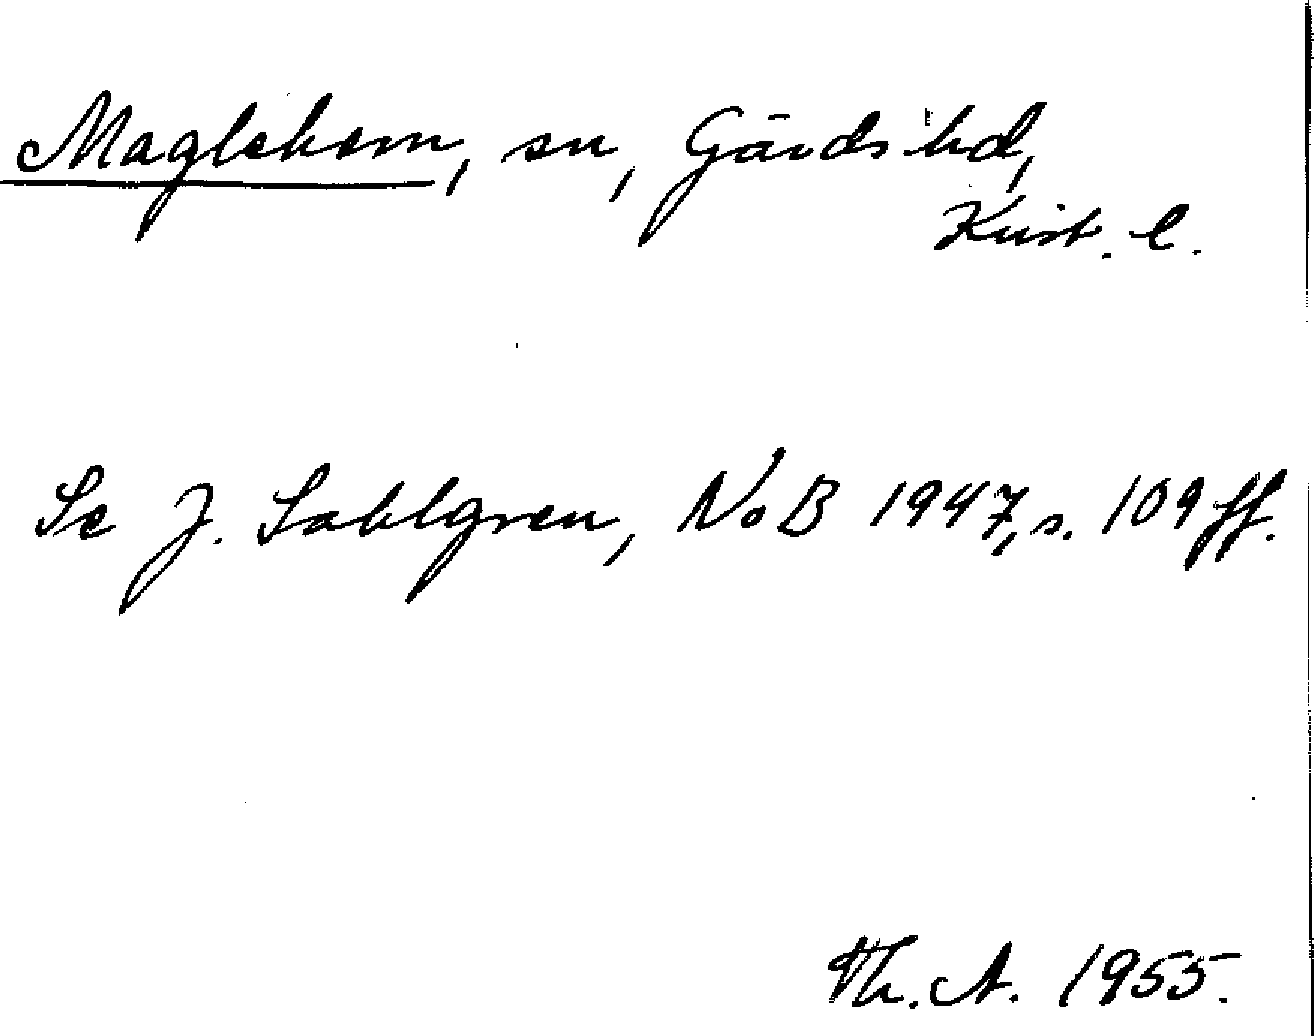 Maglehem, sn, Gärds hd,
Krist. l.
Se J. Sahlgren, NoB 1947, s. 109 ff.
Th. A. 1955.